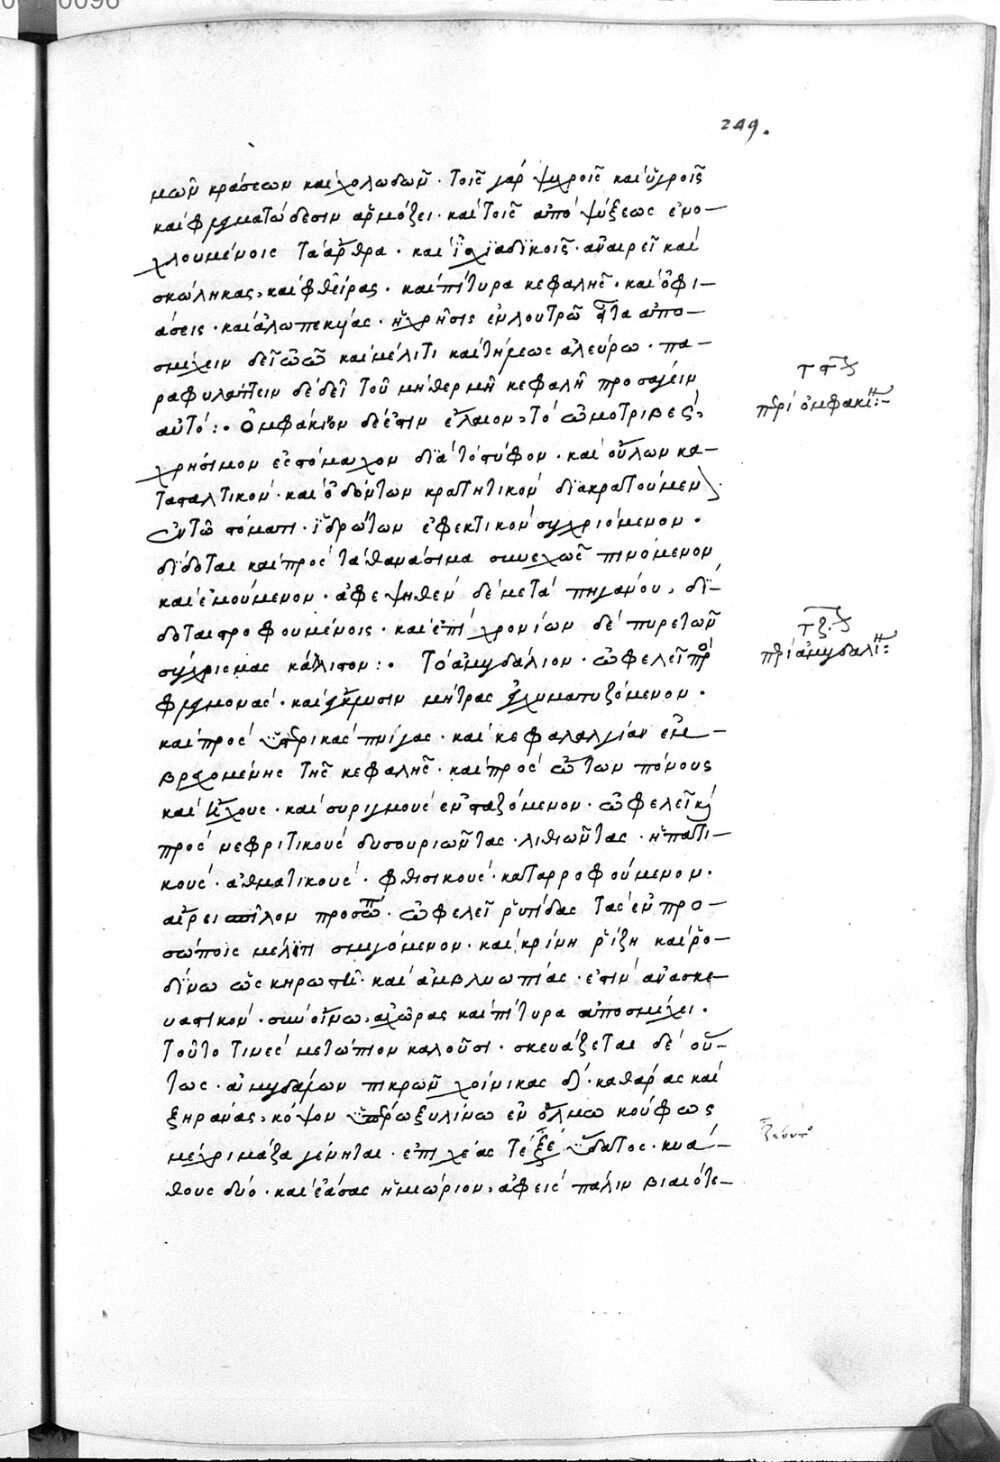 249.
μῶν κράσεων καὶ χολωδῶν · τοῖς γὰρ ψυχροῖς καὶ ὑγροῖς
καὶ φλγματώδεσιν ἁρμόζει · καὶ τοῖς ἀπὸ ψύξεως ἐνο-
χλουμένοις τὰ ἄρθρα · καὶ ἰσχϊαδϊκοῖς · ἀναιρεῖ καὶ
σκώληκας, καὶ φθεῖρας · καὶ πίτυρα κεφαλῆς · καὶ ὀφι-
άσεις · καὶ ἀλωπεκίας · ἡ χρῆσις ἐν λουτρῶ
σμήχειν δεῖ ὠῶ καὶ μέλιτι καὶ τήλεως ἀλεύρω · πα-
ραφυλάττειν δὲ δεῖ τοῦ μὴ θερμῆ κεφαλῆ προσαγειν
αὐτό :· Ὀμφάκινον δέ ἐστιν ἔλαιον, τὸ ὠμοτριβές,
χρήσιμον εἰς στόμαχον διὰ τὸ στύφον · καὶ οὔλων κα-
τασταλτικὸν · καὶ ὀδόντων κρατητικὸν διακρατούμεν
ἐν τῶ στόματι · ἱδρώτων ἐφεκτικὸν συγχριόμενον ·
δίδοται καὶ πρὸς τὰ θανάσιμα συνεχῶς πινόμενον
καὶ ἐμούμενον · ἀφεψηθὲν δὲ μετὰ πηγάνου, δί-
δοται τροφουμένοις · καὶ ἐπὶ χρονίων δὲ πυρετῶν
σύγχρισμα κάλλιστον :· Τὸ ἀμυγδάλιον · ὠφελεῖ πρὸ
φλγμονας · καὶ μήτρας
καὶ πρὸς ὑστερικὰς πνίγας · καὶ κεφαλαλγίαν ἐμ-
βρεχομένης τῆς κεφαλῆς · καὶ πρὸς ὤτων πόνους
καὶ ἤχους · καὶ συριγμοὺς ἐνσταζόμενον · ὠφελεῖ κ
πρὸς νεφριτικοὺς δυσουριῶντας · λιθιῶντας · ἡπατι-
κοὺς · ἀσθματικοὺς · φθισικοὺς · καταρροφούμενον ·
αἴρει σπῖλον προσώπ · ὠφελεῖ ῥυτίδας τὰς ἐν προ-
σώποις μέλιτι σμιγόμενον · καὶ κρίνη ῥίζη καὶ ῥο-
δίνω ὡς κηρωτῆ · καὶ ἀμβλυωπίας · ἐστὶν ἀνασκε-
υαστικὸν · σὺν οἴνω, ἀχῶρας καὶ πίτυρα ἀποσμήχει ·
τοῦτο τινὲς μετώπιον καλοῦσι · σκευάζεται δὲ οὕ-
τως · ἀμυγδάλων πικρῶν χοίνικας δ · καθάρας καὶ
ξηράνας, κόψον ὑπέρω ξυλίνω ἐν ὅλμω κούφως
μέχρι μάζα γένηται · ἐπιχέας τε ξέ ὕδατος · κυά-
θους δύο · καὶ ἐάσας ἡμιώριον, ἄφεις πάλιν βιαιότε-
περὶ ὀμφακί :-
περὶ ἀμυγδαλί :